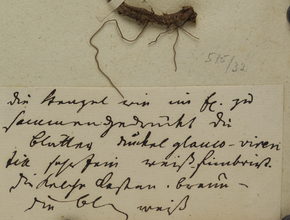 515/32
die Stengel wie im fr. zu
sammengedrückt die
Blätter dunkel glauco-viren
tia sehr fein weiß fimbriirt.
die Kelche kasten-braun-
die Bl weiß